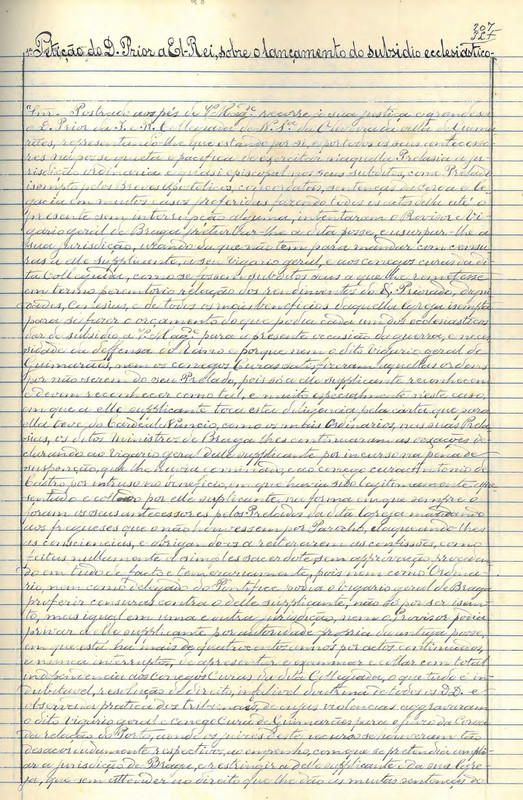 207
327
Petição do D. Prior a El-Rei, sobre o lançamento do subsidio ecclesiastico-
Snr. Postrado aos pés de V. Mag.de recorre á sua justiça e grandeza
o D. Prior da I. e R. Collegiada de N. Sr.a da Oliveira da villa de Guima
rães, representando-lhe que estando por si, e por todos os seus antecesso
res na posse quieta e pacifica de exercitar n'aquella Prelasia a ju
risdição ordinaria e quasi episcopal nos seus subditos, com Prelado
isempto pelos Breves Apostolicos, concordatas, sentenças da Coroa e le
gacia em muitos casos proferidas fazendo todos os actos d'ella até o
presente sem interrupção alguma, intentaram o Provisor e Vi
gario geral de Braga perturbar-lhe a dita posse, e usurpar-lhe a
sua jurisdição, usando da que não tem para mandar com censu
ras a elle supplicante, a seu vigario geral, e aos conegos curas da di
ta Collegiada, como se fossem subditos seus a que lhe remettesse
em termo perentorio relação dos rendimentos do D. Priorado, digni
dades, conesias, e de todos os mais beneficios daquella Igreja isempta
para se fazer o orçamento do que podia cada um dos ecclesiasticos
dar de subsidio a V. Mag.de para a presente occasião da guerra, e neces
sidade da deffensa do Reino e porque nem o dito vigario geral de
Guimarães, nem os conegos Curas satisfizeram aquellas ordens
por não serem do seu Prelado, pois só a elle supplicante reconhecem
e devem reconhecer como tal, e muito especialmente neste caso,
em que a elle supplicante toca esta deligencia pela carta que para
ella teve do Cardeal Nuncio, como os mais Ordinarios, nas suas Prela
sias, os ditos Ministros de Braga lhes continuaram as vexações de
clarando ao vigario geral delle supplicante por incurso na pena de
suspenção, que lhe havia comminado, e ao conego cura Antonio de
Castro por intruso no beneficio, em que havia sido legitimamente apre
sentado e collado por elle suplicante, na forma em que sempre o
foram os seus antecessores pelos Prelados da dita Igreja mandando
aos freguezes que o não houvessem por Parocho, enlaqueando-lhes
as consciencias, e obrigando-os a reiterarem as confissões, como
feitas nullamente a simples sacerdote sem approvação proceden
do em tudo de facto e temerariamente, pois nem como Ordina
rio, nem como delegado do Pontifice podia o vigario geral de Braga
proferir censuras contra o delle supplicante, não só por ser isem
to, mas igual em uma e outra jurisdição, nem o Provisor podia
privar a elle supplicante por autoridade propria da antiga posse,
em que está ha mais de quatrocentos annos por actos continuados,
e nunca interruptos, de apresentar e examinar e collar com total
independencia aos conegos Curas da dita Collegiada, o que tudo é in
dubitavel, resolução de direito, infalivel doutrina de todos os D.D. e
observada pratica dos tribunaes, de cujas violencias aggravaram
o dito vigario geral e conego Cura de Guimarães para o Juizo da Coroa
da relação do Porto, aonde os juizes deste recurso se houveram tão
desacordadamente respectivo, ao empenho, com que se pretendia amplia
r a jurisdição de Braga, e restringir a delle supplicante e da sua Igre
ja, que sem attender ao direito que lhe dão as muitas sentenças de